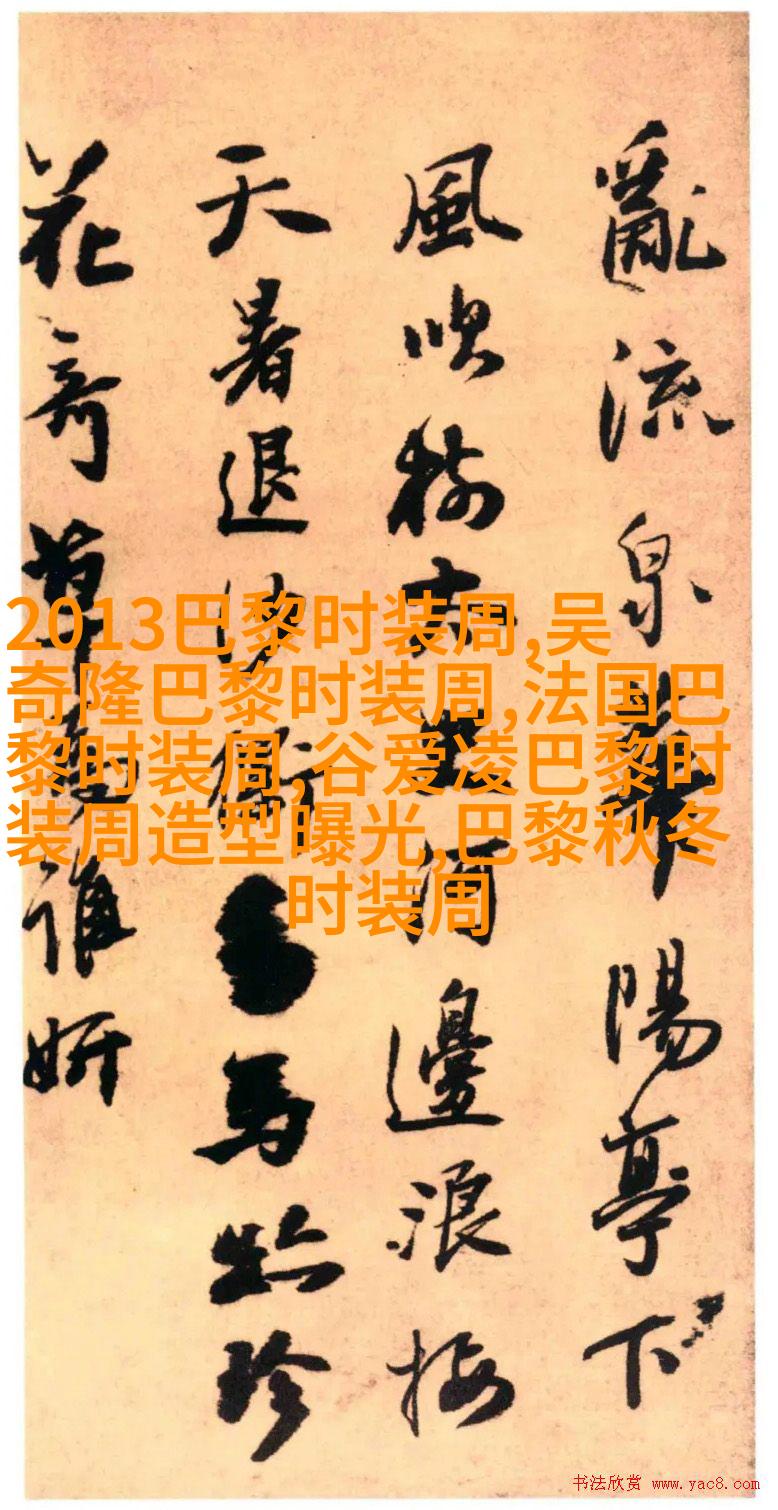 2013巴黎时装周,吴
奇隆巴黎时装周,法国巴
黎时装周,谷爱凌巴黎时
装周造型曝光,巴黎秋冬
时装周
亂流泉陽亭下
風吹河邊浪接
天暑退沙馬珍
花奇草誰妍
书法欣赏 www.yac8.com